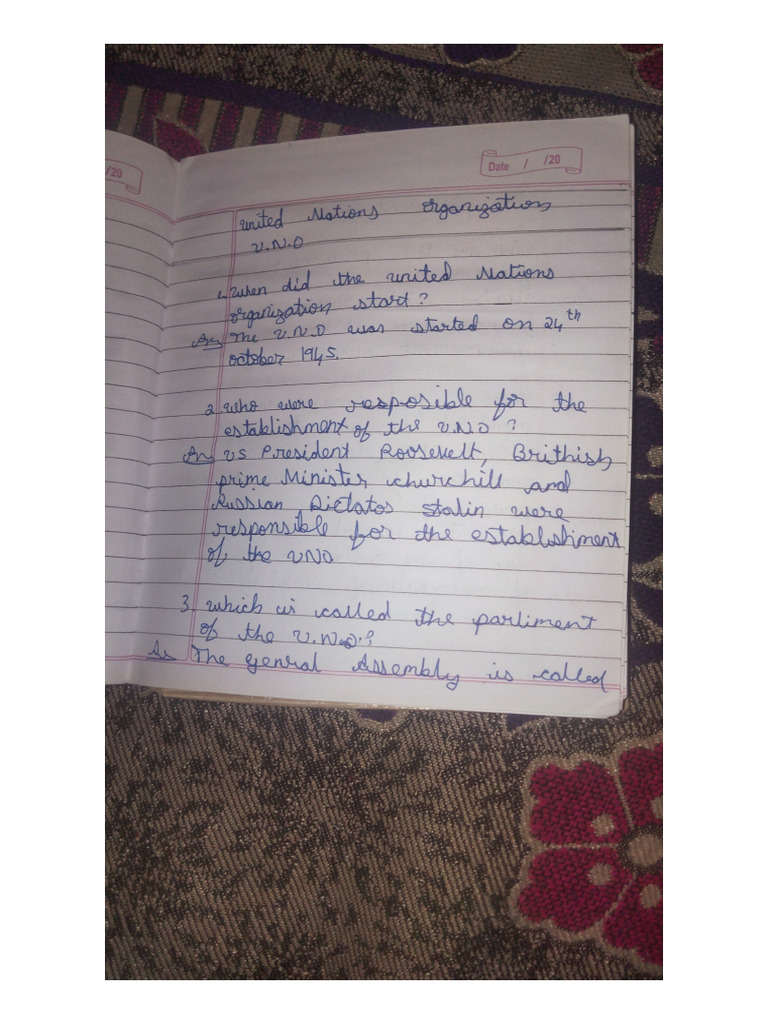 /20
Date / /20
United Nations Organization
U.N.O
1. When did the united Nations
organization start?
Ans The U.N.O was started on 24th
october 1945.
2. who were resposible for the
establishment of the U.N.O ?
Ans US President Roosevelt, Brithish
prime Minister churchill and
Russian Dictatos Stalin were
responsible for the establishment
of the UNO
3. which is called the parliment
of the U.N.O.?
As The genral Assembly is called